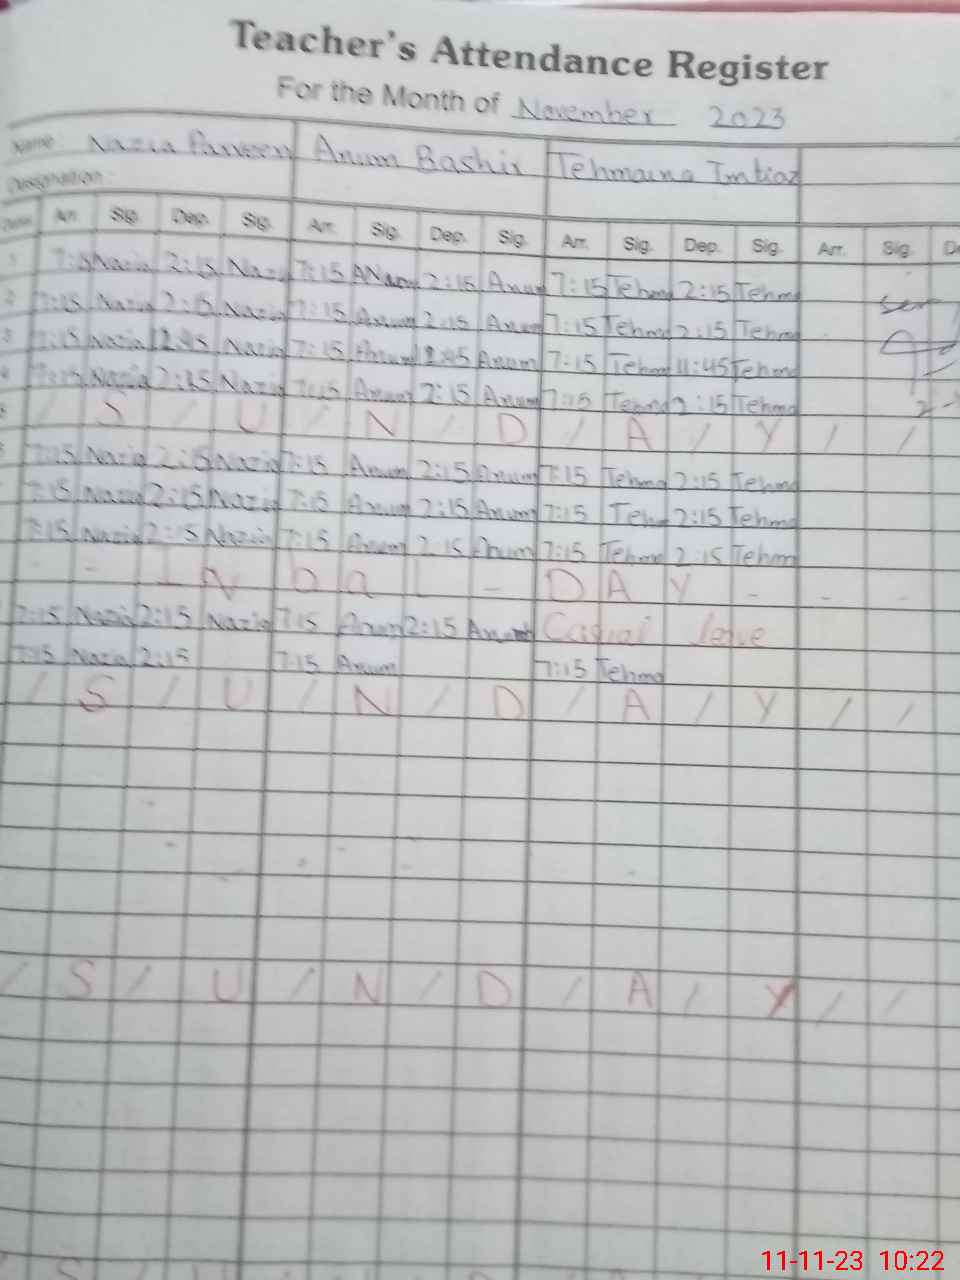 Teacher's Attendance Register
For the Month of November 2023
Name: Nazia Parveen Anum Bashir Tehmaina Imtiaz
Designation:
Date Arr. Sig. Dep. Sig. Arr. Sig. Dep. Sig. Arr. Sig. Dep. Sig. Arr. Sig.
1 7:15 Nazia 2:15 Nazi 7:15 ANam 2:15 Anum 7:15 Tehm 2:15 Tehm
2 7:15 Nazia 2:15 Nazia 7:15 Anum 2:15 Anum 7:15 Tehm 2:15 Tehm
3 7:15 Nazia Nazia 7:15 Anum Anum 7:15 Tehm 11:45 Tehm
4 7:15 Nazia 2:15 Nazia 7:15 Anum 2:15 Anum 7:15 Tehm 2:15 Tehm
/ S / U / N / D / A / Y / /
7:15 Nazia 2:15 Nazia 7:15 Anum 2:15 Anum 7:15 Tehm 2:15 Tehm
7:15 Nazia 2:15 Nazia 7:15 Anum 2:15 Anum 7:15 Teh 2:15 Tehm
7:15 Nazia 2:15 Nazia 7:15 Anum 2:15 Anum 7:15 Tehm 2:15 Tehm
- - I q b a l - D A Y - - -
7:15 Nazia 2:15 Nazia 7:15 Anum 2:15 Anum Casual leave
7:15 Nazia 2:15 7:15 Anum 7:15 Tehm
/ S / U / N / D / A / Y / /
/ S / U / N / D / A / Y / /
11-11-23 10:22